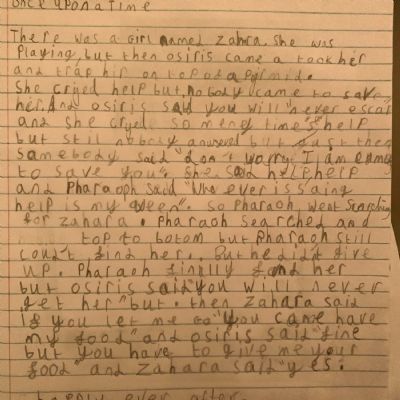 once upon a time
There was a Girl named Zahra, she was
Playing, but then osiris came a took her
and trap hir on top of a pirmid.
She cryed help but nobody came to save
her. And osiris said you will "never escap
and she cryed so meny time's help
but still nobody answered but just then
somebody said "don't worry I am
to save you". she said help help
and Pharaoh said "Who ever is s'aing
help is my Queen". so Pharaoh went searching
for zahara. Pharaoh searched and
top to botom but Pharaoh still
could't find her. But he didn't give
up. Pharaoh finlly fond her
but osiris said you will never
get her "but. then Zahara said
If you let me go "you came have
my food" and osiris said "fine
but you have to give me your
food" and Zahara said "yes.
happily ever after.